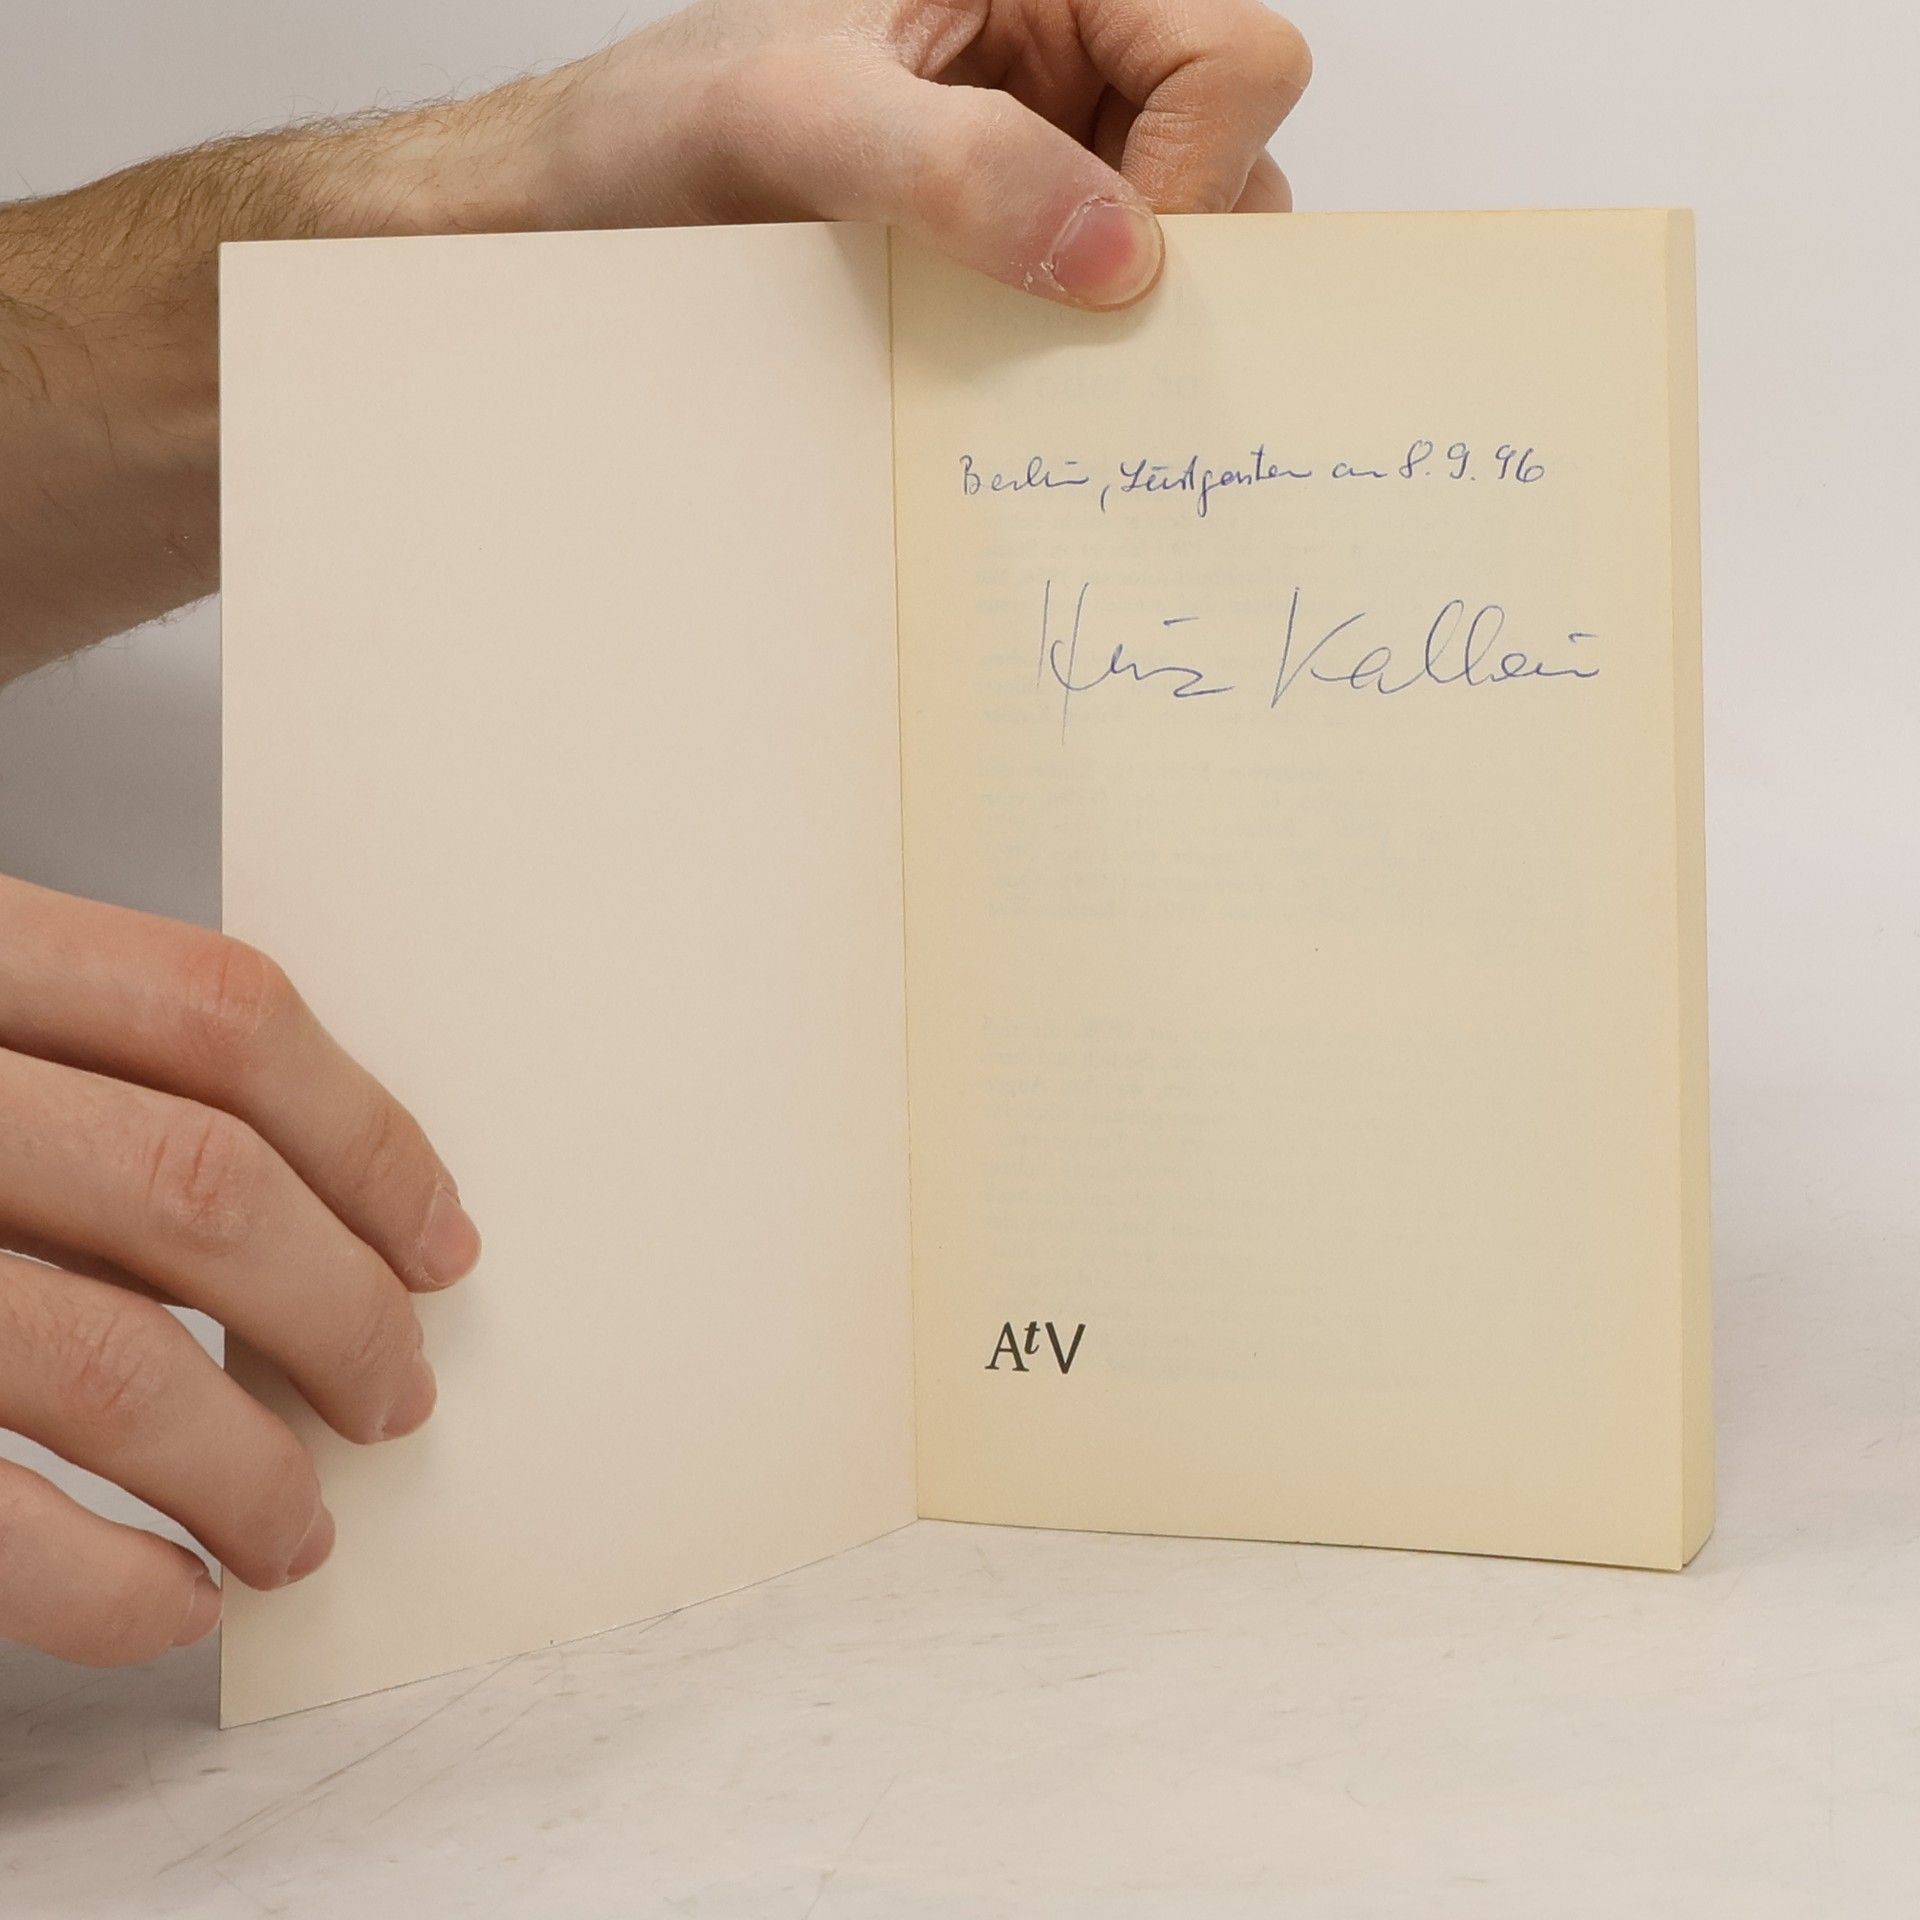 Berlin, Lustgarten am 8.9.96
Heinz Kallein
AtV